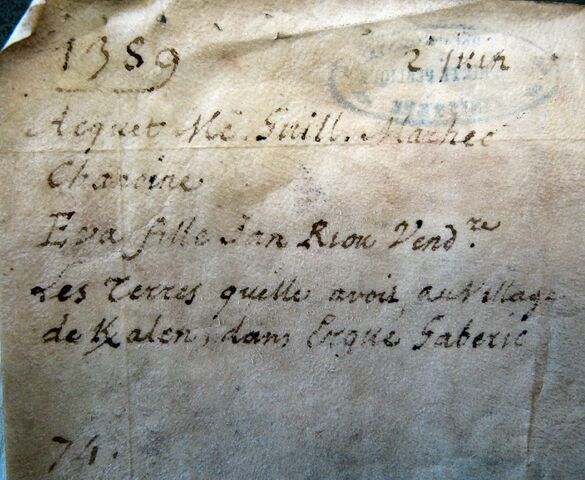 1389 2 juin
Acquet Me. Guill. Marhec
Chanoine
Eva fille Jan Riou Vend.re
Les Terres quelle avoit au Village
de Kalen, dans Ergue Gaberic
74.